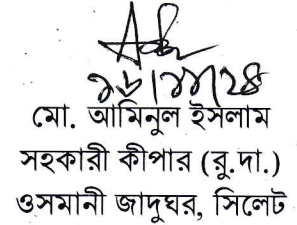 ১৬/১১/২৪
মো. আমিনুল ইসলাম
সহকারী কীপার (রু.দা.)
ওসমানী জাদুঘর, সিলেট